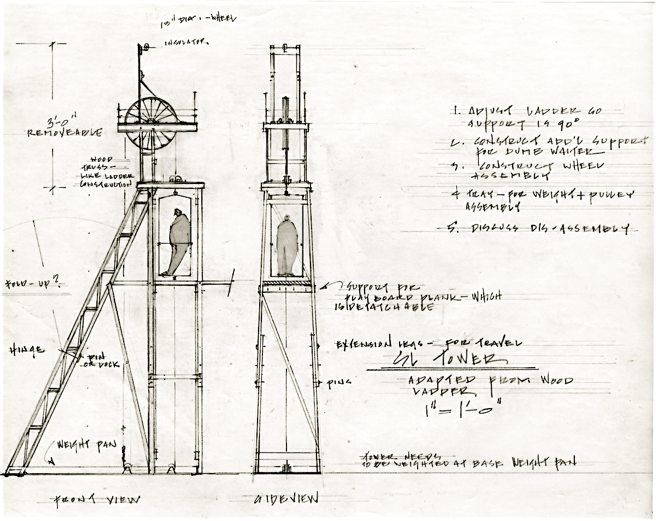 18" DIA. - WHEEL
INSULATOR.
3'-0"
REMOVEABLE
WOOD
TRUSS -
LIKE LADDER
CONSTRUCTION
1. ADJUST LADDER SO
SUPPORT IS 90°
2. CONSTRUCT ADD'L SUPPORT
FOR DUMB WAITER
3. CONSTRUCT WHEEL
ASSEMBLY
4 TRAY - FOR WEIGHT + PULLEY
ASSEMBLY
5. DISCUSS DIS-ASSEMBLY
FOLD-UP?
HINGE
PIN
OR LOCK
WEIGHT PAN
SUPPORT FOR
PLAYBOARD PLANK - WHICH
IS DETATCHABLE
EXTENSION LEGS - FOR TRAVEL
PINS
SL TOWER
ADAPTED FROM WOOD
LADDER
1" = 1'-0"
TOWER NEEDS
TO BE WEIGHTED AT BASE WEIGHT PAN
FRONT VIEW
SIDEVIEW